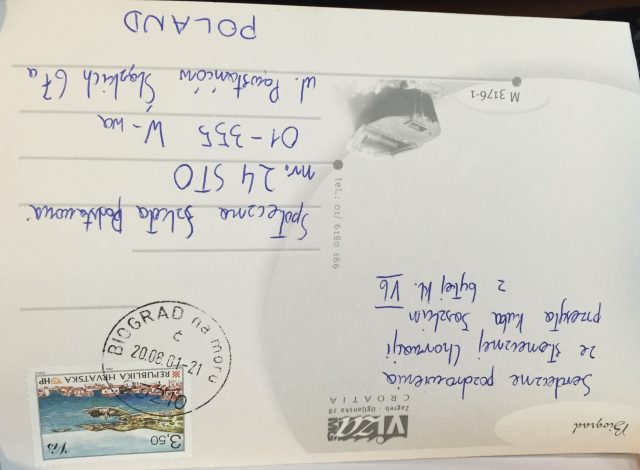 Biograd
VIZA
Zagreb - Ugljanska 28
CROATIA
Serdeczne pozdrowienia
ze słonecznej Chorwacji
przesyła Kuba
z byłej kl. Vb
tel.: 01/ 6180 166
M 3176-1
3,50
Vis
REPUBLIKA HRVATSKA HP
BIOGRAD na moru
č
20.08.01-21
Społeczna Szkoła Podstawowa
nr. 24 STO
01-355 W-wa
ul. Powstańców Śląskich 67a
POLAND